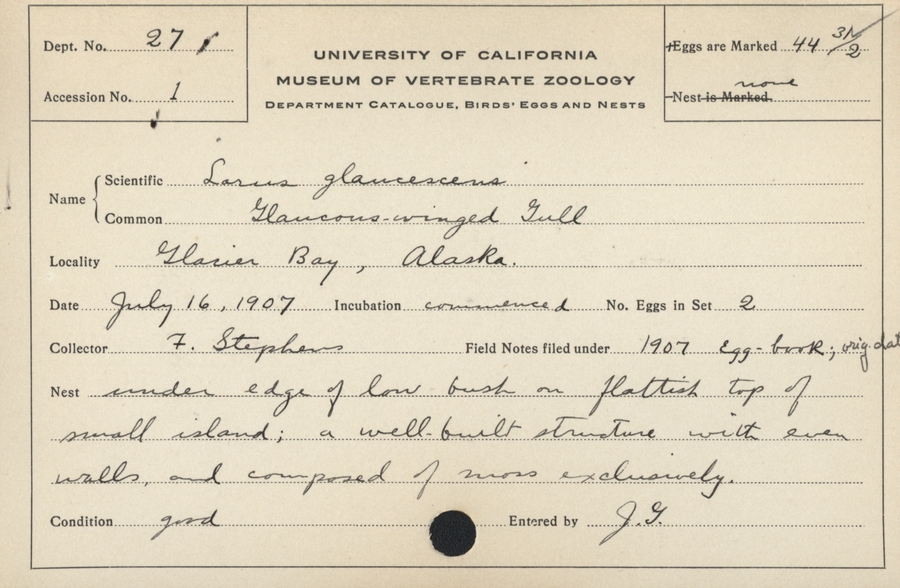 Dept. No. 27
Accession No. 1
UNIVERSITY OF CALIFORNIA
MUSEUM OF VERTEBRATE ZOOLOGY
DEPARTMENT CATALOGUE, BIRDS' EGGS AND NESTS
Eggs are Marked 44 31/2
none
Nest is Marked
Name
Scientific Larus glaucescens
Common Glaucous-winged Gull
Locality Glacier Bay, Alaska.
Date July 16, 1907 Incubation commenced No. Eggs in Set 2
Collector F. Stephens Field Notes filed under 1907 Egg-book; orig. dat
Nest under edge of low bush on flattish top of
small island; a well-built structure with even
walls, and composed of moss exclusively.
Condition good Entered by J.G.